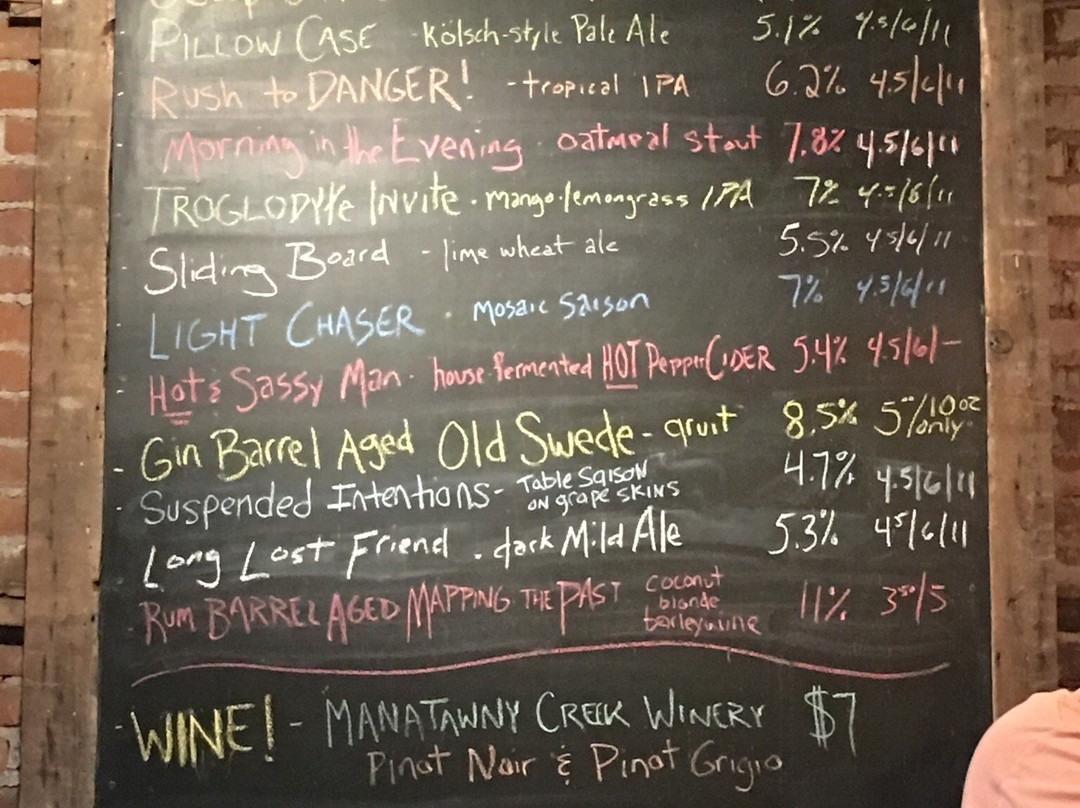 - PILLOW CASE - Kölsch-style Pale Ale 5.1% 4.5/6/11
- Rush to DANGER! - tropical IPA 6.2% 4.5/6/11
- Morning in the Evening - oatmeal stout 7.8% 4.5/6/11
- TROGLODYte INVITE - mango-lemongrass IPA 7% 4.5/6/11
- Sliding Board - lime wheat ale 5.5% 4.5/6/11
- LIGHT CHASER - Mosaic Saison 7% 4.5/6/11
- Hot & Sassy Man - house-fermented HOT Pepper CIDER 5.4% 4.5/6/-
- Gin Barrel Aged Old Swede - gruit 8.5% 5-/10oz only
- Suspended Intentions - Table Saison on grape SKINS 4.7% 4.5/6/11
- Long Lost Friend - dark Mild Ale 5.3% 4.5/6/11
- Rum BARREL AGED MAPPING THE PAST coconut blonde barleywine 11% 3.50/5
- WINE! - MANATAWNY CREEK WINERY $7
Pinot Noir & Pinot Grigio